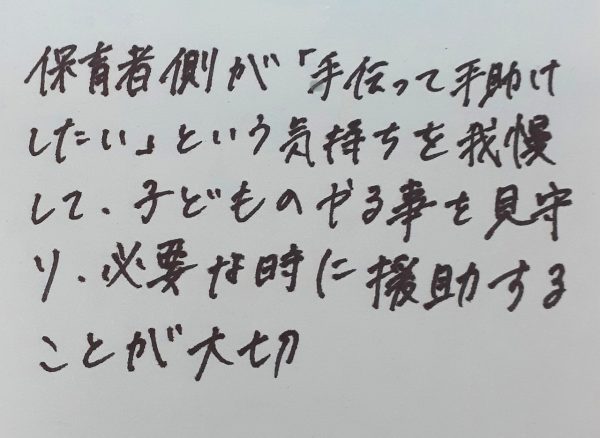 保育者側が「手伝って手助け
したい」という気持ちを我慢
して、子どものやる事を見守
り、必要な時に援助する
ことが大切